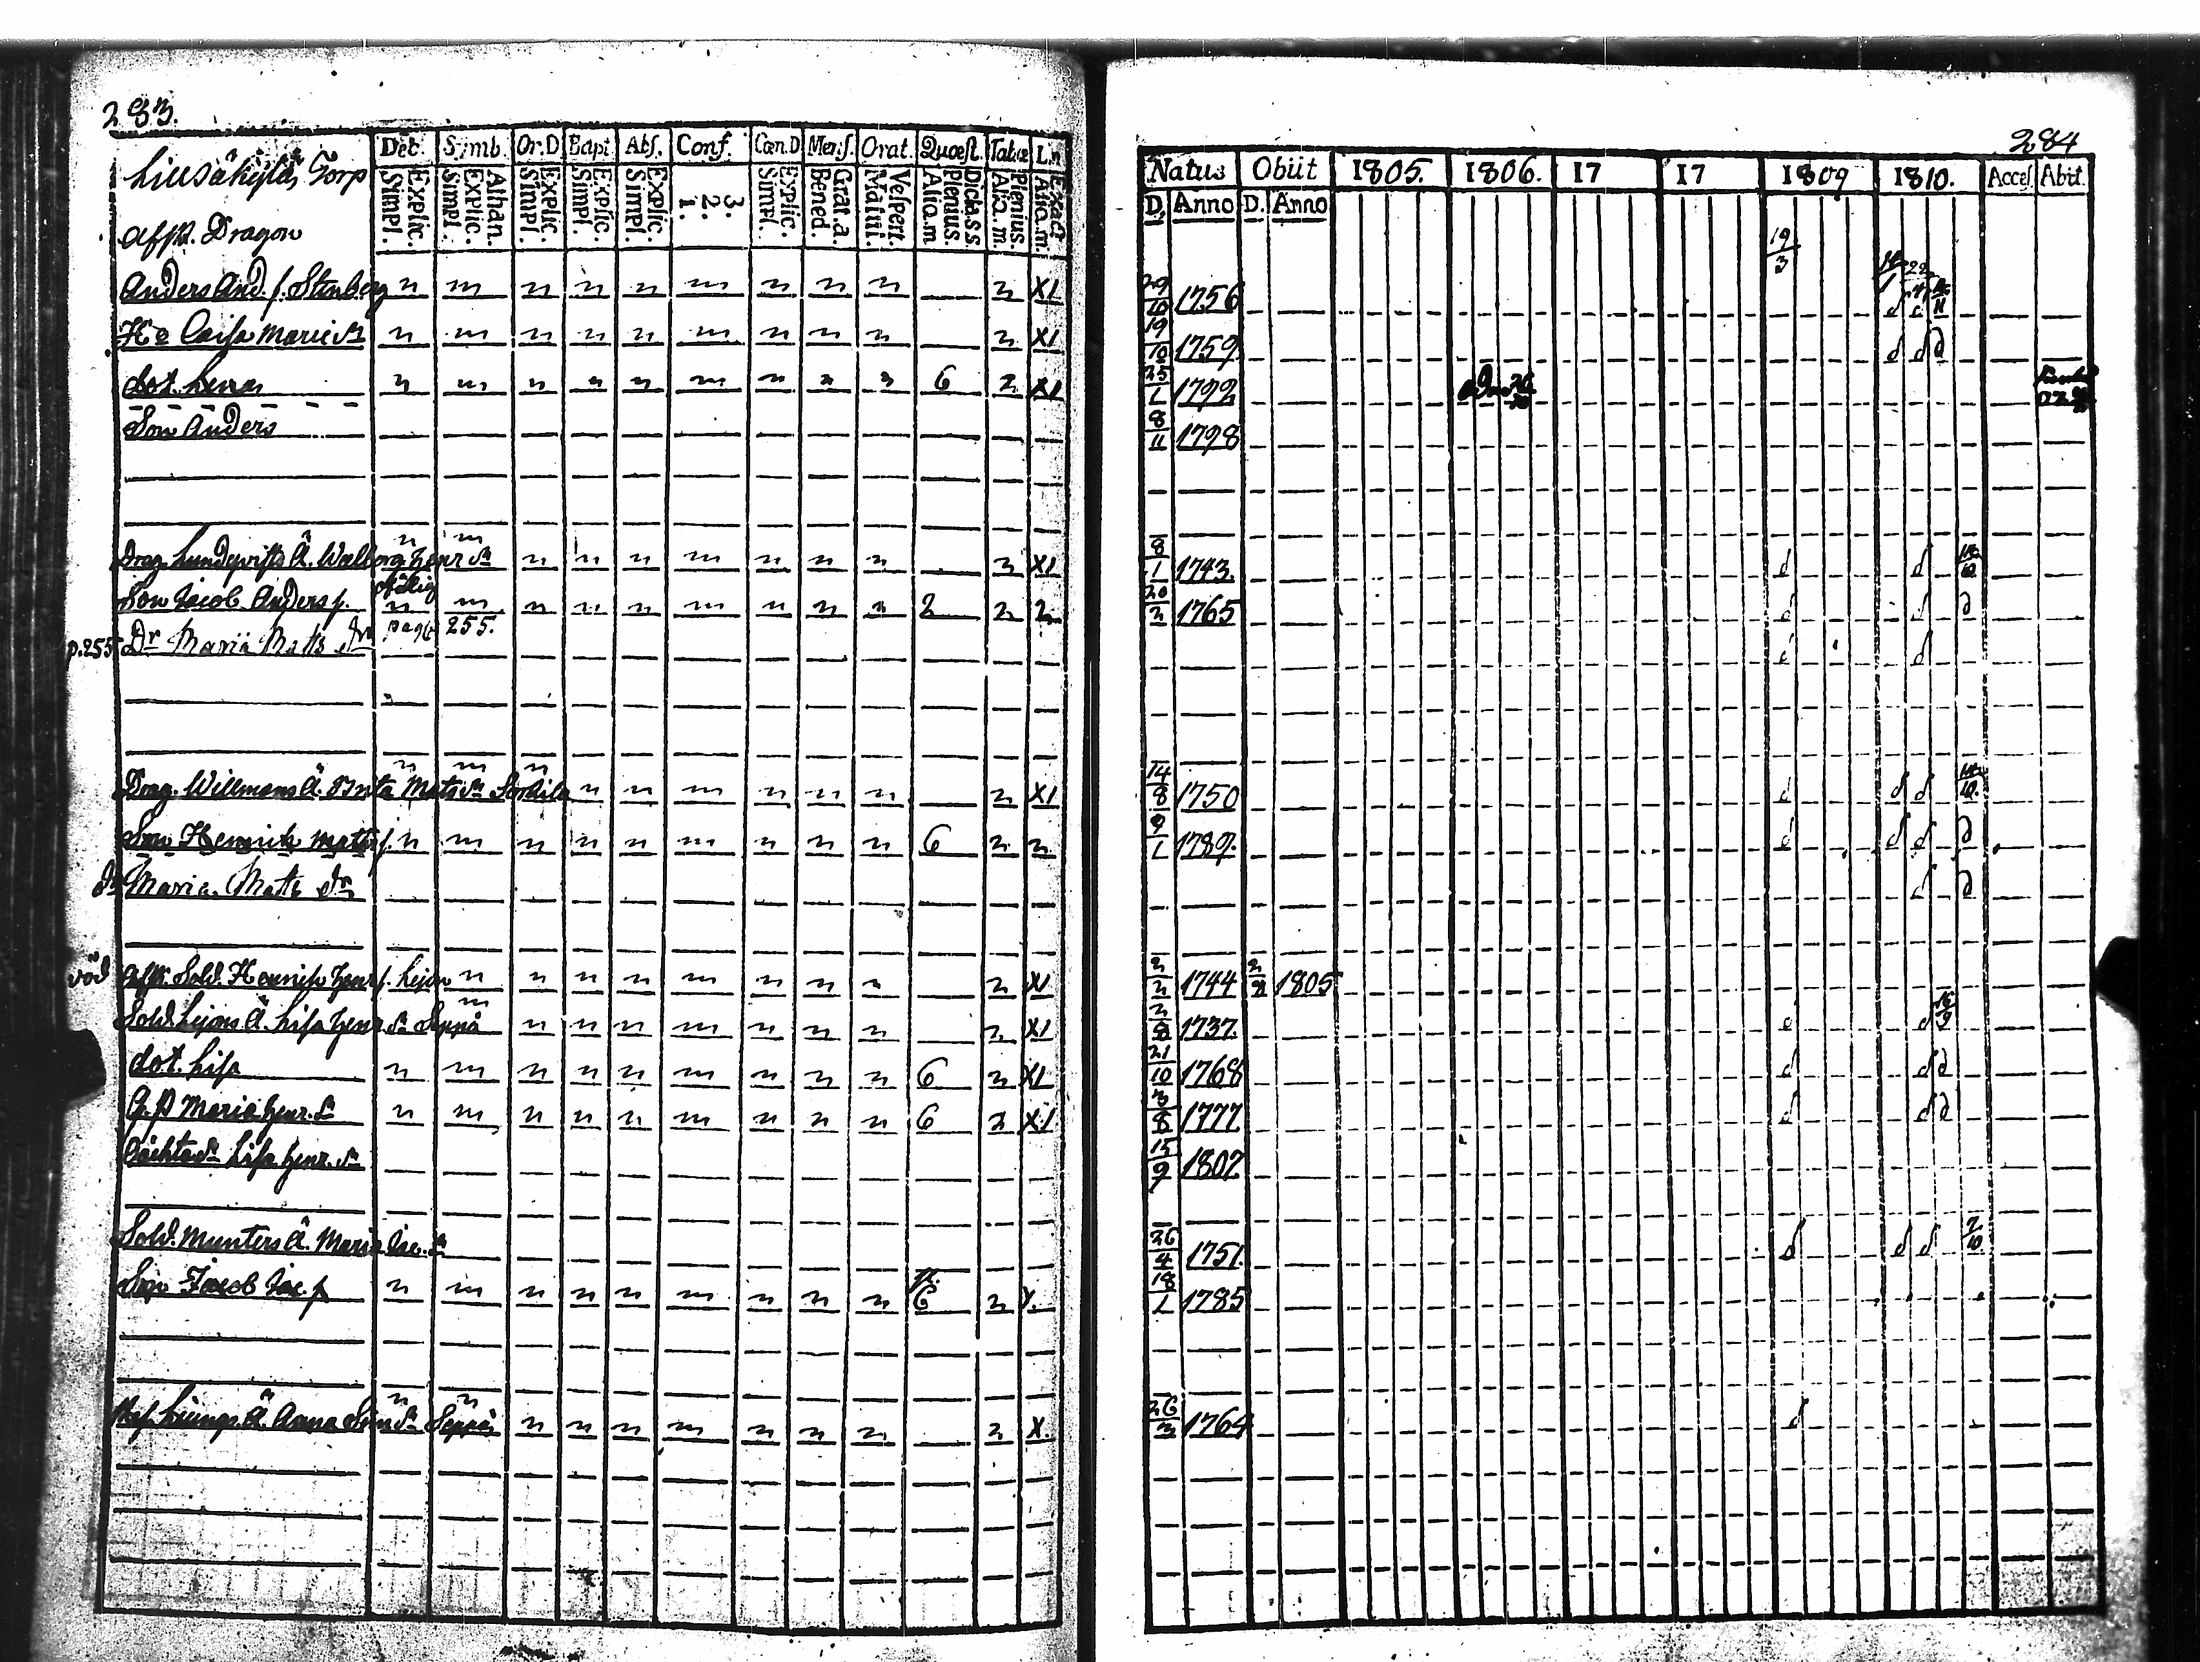 283.
Dec. Symb. Or.D Bapt Abs. Conf. Cœn.D Mens. Orat. Quœst. Tabœ L.n
Explic. Simpl. Athan. Explic. Simpl. Explic. Simpl. Explic. Simpl. Explic. Simpl. 3. 2. 1. Explic. Simpl. Grat.a. Bened. Vespert. Matut. Dicta.s.s Plenius. Alia.m Plenius. Alia.m. Exact Alia.m.
Torp
Afsk. Dragon
Anders And. s. Stenberg n m n n n m n n n 2 XI
H:o Caisa Marie dr n m n n n m n n n 2 XI
dot. Lena n m n n n m n n n 6 2 XI
Son Anders
n m
Drag. Lundqvists Ä. Walborg Henr. dr n n n m n n n 2 XI
Son Jacob Anders s. n m n n n m n n n 2 2 2
p.255 Dr Maria Matts dr page 255.
n m n
Drag. Willmans Ä. Brita Mats dr n n m n n n 2 XI
Son Henrich Matts s. n m n n n m n n n 6 2 2
Dr Maria Matts dr
död Afsk. Sold. Henrich Henr. s. Lejon n n n n m n n n 2 XI
m
Sold. Lejons Ä. Lisa Henr. dr Seppä n n n m n n n 2 XI
dot. Lisa n m n n n m n n n 6 2 XI
Maria Henr. dr n m n n n m n n n 6 2 XI
Lisa Henr. dr
Sold. Munters Ä. Maria Jac. dr
Son Jacob Jac. s. n m n n n m n n n 6 2 X.
n n
Ä. Anna Sim. dr Seppä n n n m n n n 2 X.
284
Natus Obiit 1805. 1806. 17 17 1809 1810. Acces. Abit.
D. Anno D. Anno
19/3
29/10 1756 d d
19/10 1759. d d d
25/1 1792
8/11 1798
8/1 1743. d d
20/2 1765 d d d
d d
14/8 1750 d d d
9/1 1789. d d d d
d d
2/2 1744 1805
2/8 1737. d d
21/10 1768 d d d
3/8 1777 d d d
15/9 1802
26/4 1751. d d d 7/10
18/1 1785
26/3 1764 d